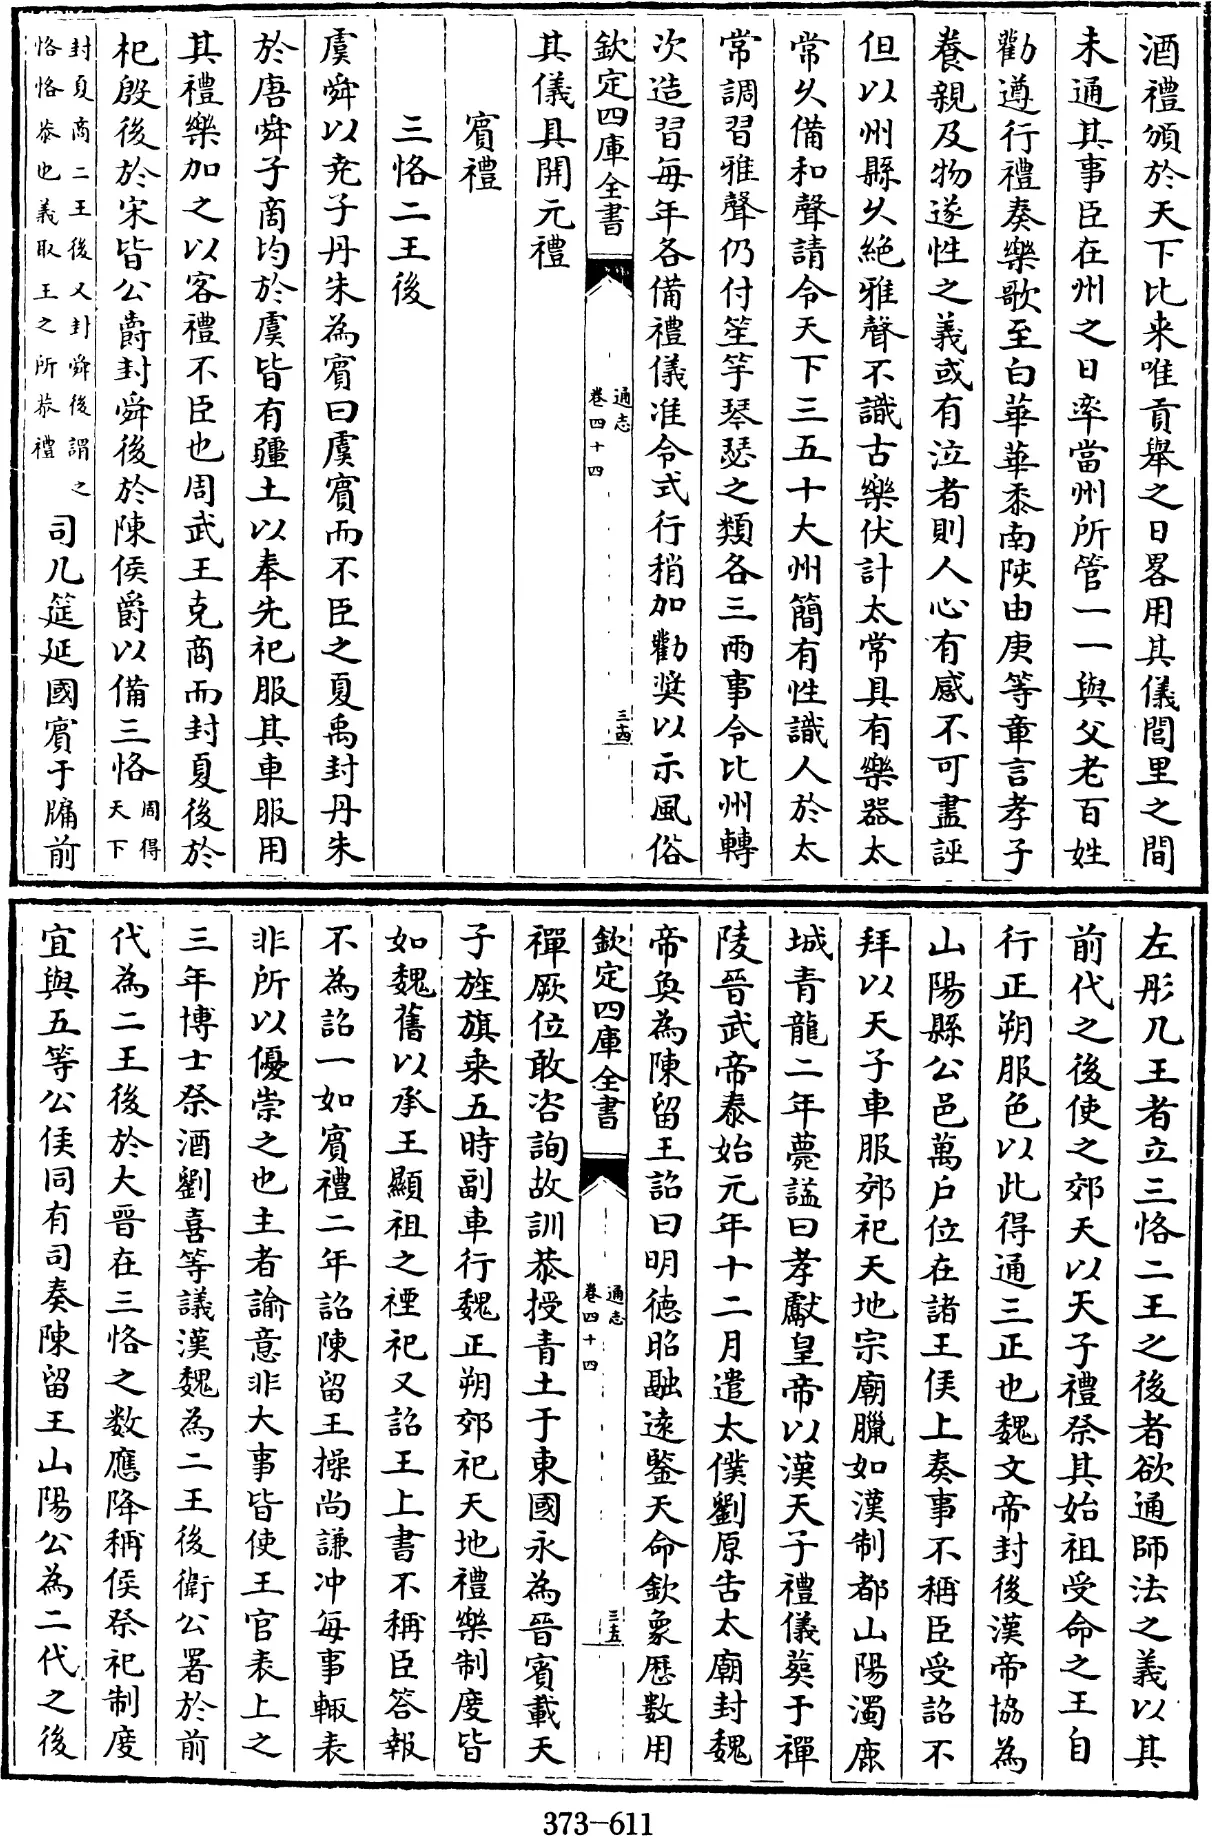 酒禮頒於天下比来唯貢舉之日畧用其儀閭里之間
未通其事臣在州之日率當州所管一一與父老百姓
勸遵行禮奏樂歌至白華華黍南陔由庚等章言孝子
養親及物遂性之義或有泣者則人心有感不可盡誣
但以州縣久絶雅聲不識古樂伏計太常具有樂器太
常久備和聲請令天下三五十大州簡有性識人於太
常調習雅聲仍付笙竽琴瑟之類各三兩事令比州轉
次造習每年各備禮儀准令式行稍加勸奨以示風俗
欽定四庫全書
通志
卷四十四
三十四
其儀具開元禮
賓禮
三恪二王後
虞舜以尭子丹朱為賓曰虞賓而不臣之夏禹封丹朱
於唐舜子商均於虞皆有疆土以奉先祀服其車服用
其禮樂加之以客禮不臣也周武王克商而封夏後於
杞殷後於宋皆公爵封舜後於陳侯爵以備三恪周得
天下
封夏商二王後又封舜後謂之
恪恪恭也義取王之所恭禮
司几筵延國賓于牖前
左彤几王者立三恪二王之後者欲通師法之義以其
前代之後使之郊天以天子禮祭其始祖受命之王自
行正朔服色以此得通三正也魏文帝封後漢帝協為
山陽縣公邑萬户位在諸王侯上奏事不稱臣受詔不
拜以天子車服郊祀天地宗廟臘如漢制都山陽濁鹿
城青龍二年薨諡曰孝獻皇帝以漢天子禮儀葬于禪
陵晉武帝泰始元年十二月遣太僕劉原告太廟封魏
帝奐為陳留王詔曰明德昭融遠鑒天命欽象歴數用
欽定四庫全書
通志
卷四十四
三十五
禪厥位敢咨詢故訓恭授青土于東國永為晉賓載天
子旌旗乗五時副車行魏正朔郊祀天地禮樂制度皆
如魏舊以承王顯祖之禋祀又詔王上書不稱臣答報
不為詔一如賓禮二年詔陳留王操尚謙冲每事輙表
非所以優崇之也主者諭意非大事皆使王官表上之
三年博士祭酒劉喜等議漢魏為二王後衛公署於前
代為二王後於大晉在三恪之数應降稱侯祭祀制度
宜與五等公侯同有司奏陳留王山陽公為二代之後
373-611